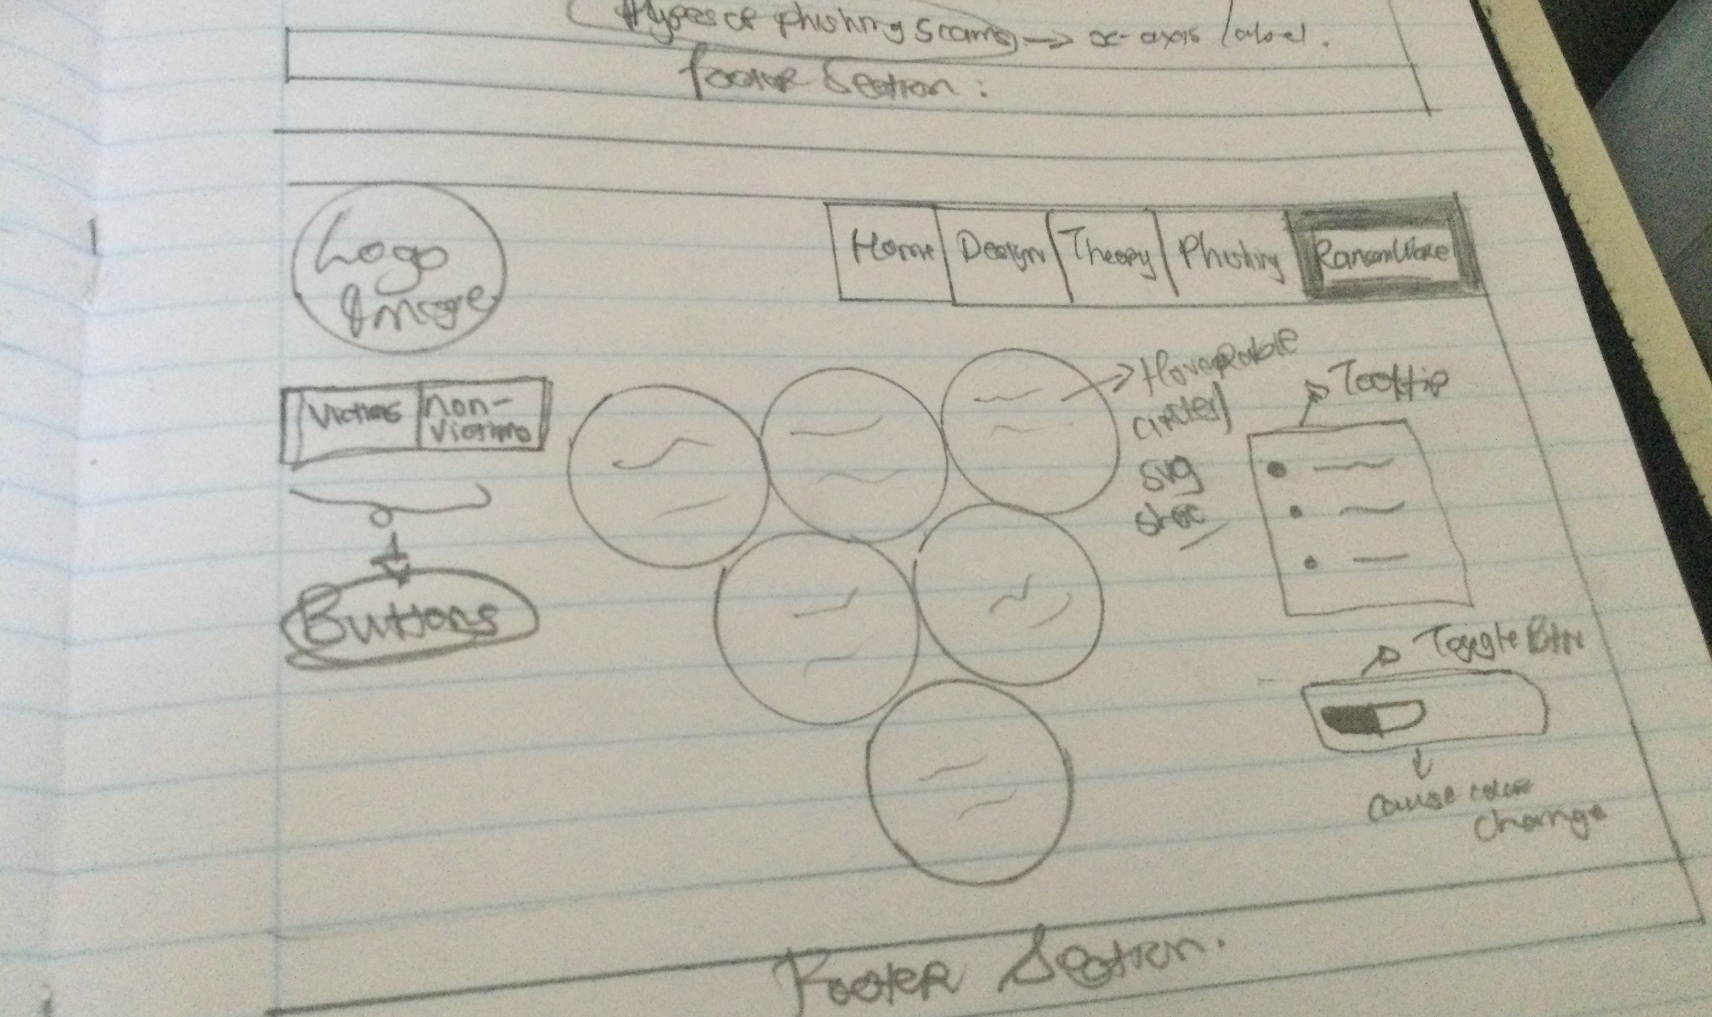 types of phishing scams → x-axis label.
Footer Section:
Logo
Image
Home
Design
Theory
Phishing
RansomWare
Victims
non-
Victims
Buttons
Hoverable
circles
svg
Tooltip
Toggle Btn
cause color
change
Footer Section.